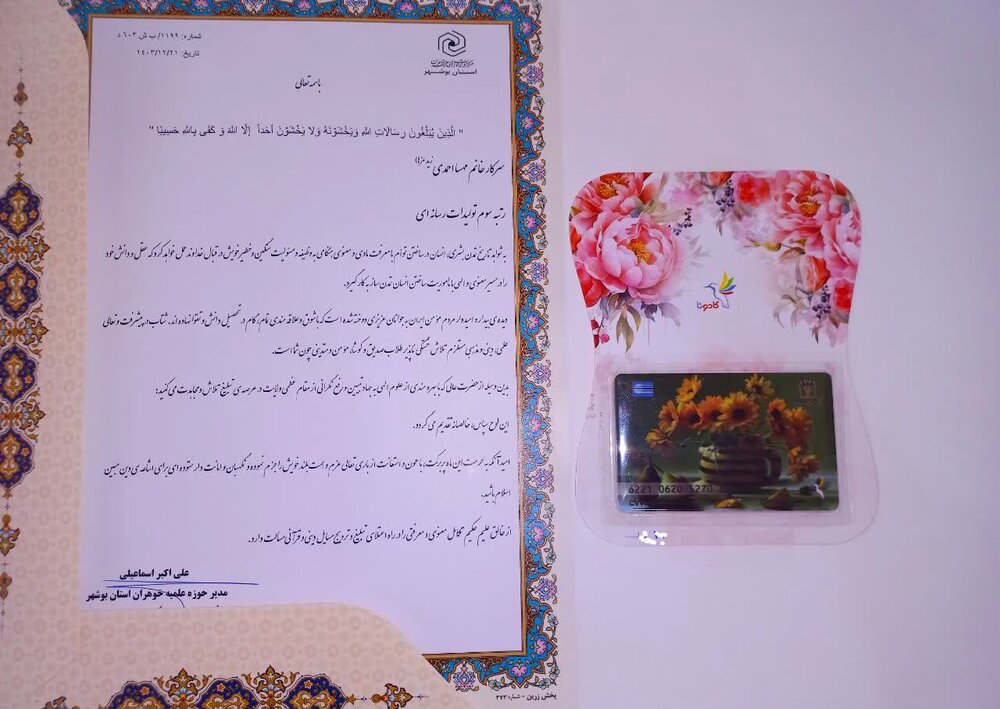 شماره: ۱۱۹۹/ ب ش ۶۰۳ د
تاریخ: ۱۴۰۳/۱۲/۲۱
استان بوشهر
باسمه تعالی
" الَّذِينَ يُبَلِّغُونَ رِسَالَاتِ اللَّهِ وَيَخْشَوْنَهُ وَلَا يَخْشَوْنَ أَحَداً إِلَّا اللَّهَ وَ كَفَى بِاللَّهِ حَسِيبًا "
سرکار خانم مهسا احمدی
رتبه سوم تولیدات رسانه ای
به شواهد تاریخ تمدن بشری، انسان در ساختن توام با معرفت مادی و معنوی هنگامی به وظیفه و مسئولیت سنگین و خطیر خویش در قبال خداوند عمل خواهد کرد که عقل و دانش خود
را در مسیر معنوی و الهی با ماموریت ساختن انسان تمدن ساز به کار گیرد.
دیده ی بیدار و امیدوار مردم مؤمن ایران به جوانان عزیزی دوخته شده است که با شوق و علاقه مندی تمام، گام در تحصیل دانش و تقوا نهاده اند. شتاب در پیشرفت و تعالی
علمی، دینی و مذهبی مستلزم تلاش خستگی ناپذیر طلاب صدیق و کوشا، مؤمن و متدینی چون شما است.
بدین وسیله از حضرت عالی که با بهره مندی از علوم الهی به جهاد تبیین و رفع نگرانی از مقام عظمی ولایت در عرصه ی تبلیغ تلاش و مجاهدت می کنید؛
این لوح سپاس، خالصانه تقدیم می گردد.
امید آنکه به حرمت این ماه پربرکت، با عون و استعانت از باری تعالی عزم و همت بلند خویش را جزم نموده و نگهبان و امانت دار ستوده ای برای اشاعه ی دین مبین
اسلام باشید.
از خالق علیم حکیم تکامل معنوی و معرفتی را در راه اعتلای تبلیغ و ترویج مسایل دینی و قرآنی مسألت دارد.
علی اکبر اسماعیلی
مدیر حوزه علمیه خواهران استان بوشهر
پخش زرین - شماره ۳۷۳
کادونا
6221 0620 5270